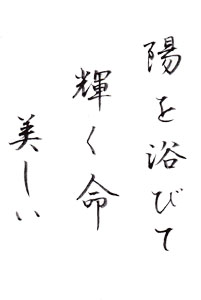 陽を浴びて
輝く命
美しい